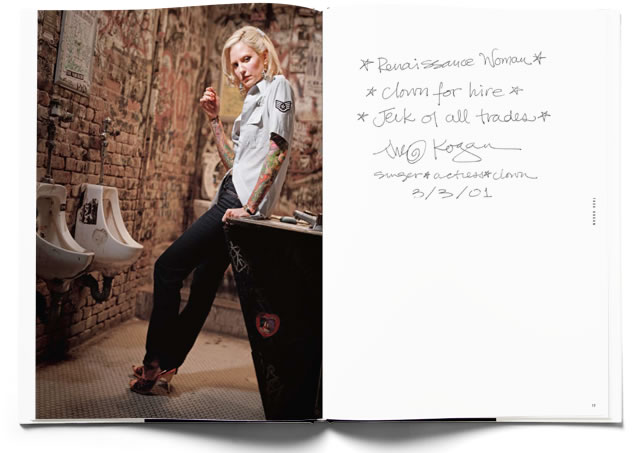 *Renaissance Woman*
*Clown for hire*
*Jerk of all trades*
Theo Kogan
singer*actress*clown
3/3/01
THEO KOGAN